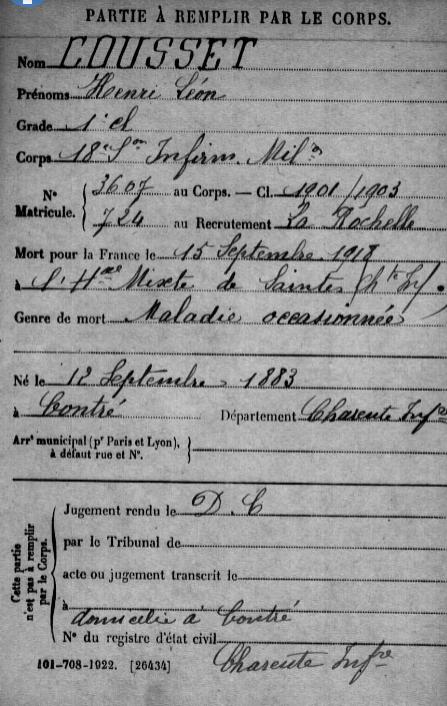 PARTIE À REMPLIR PAR LE CORPS.
Nom COUSSET
Prénoms Henri Léon
Grade 1e cl
Corps 18e Son Infirm. Mil
N° Matricule. { 3607 au Corps. — Cl. 1901/1903
724 au Recrutement La Rochelle
Mort pour la France le 15 Septembre 1918
à l'Hal Mixte de Saintes (Ch te Infre)
Genre de mort Maladie occasionnée
Né le 12 Septembre 1883
à Contré Département Charente Infre
Arrt municipal (pr Paris et Lyon), à défaut rue et N°. }
Cette partie n'est pas à remplir par le Corps. {
Jugement rendu le D. C
par le Tribunal de
acte ou jugement transcrit le
à
domicilié à Contré
N° du registre d'état civil
Charente Infre
101-708-1922. [26434]